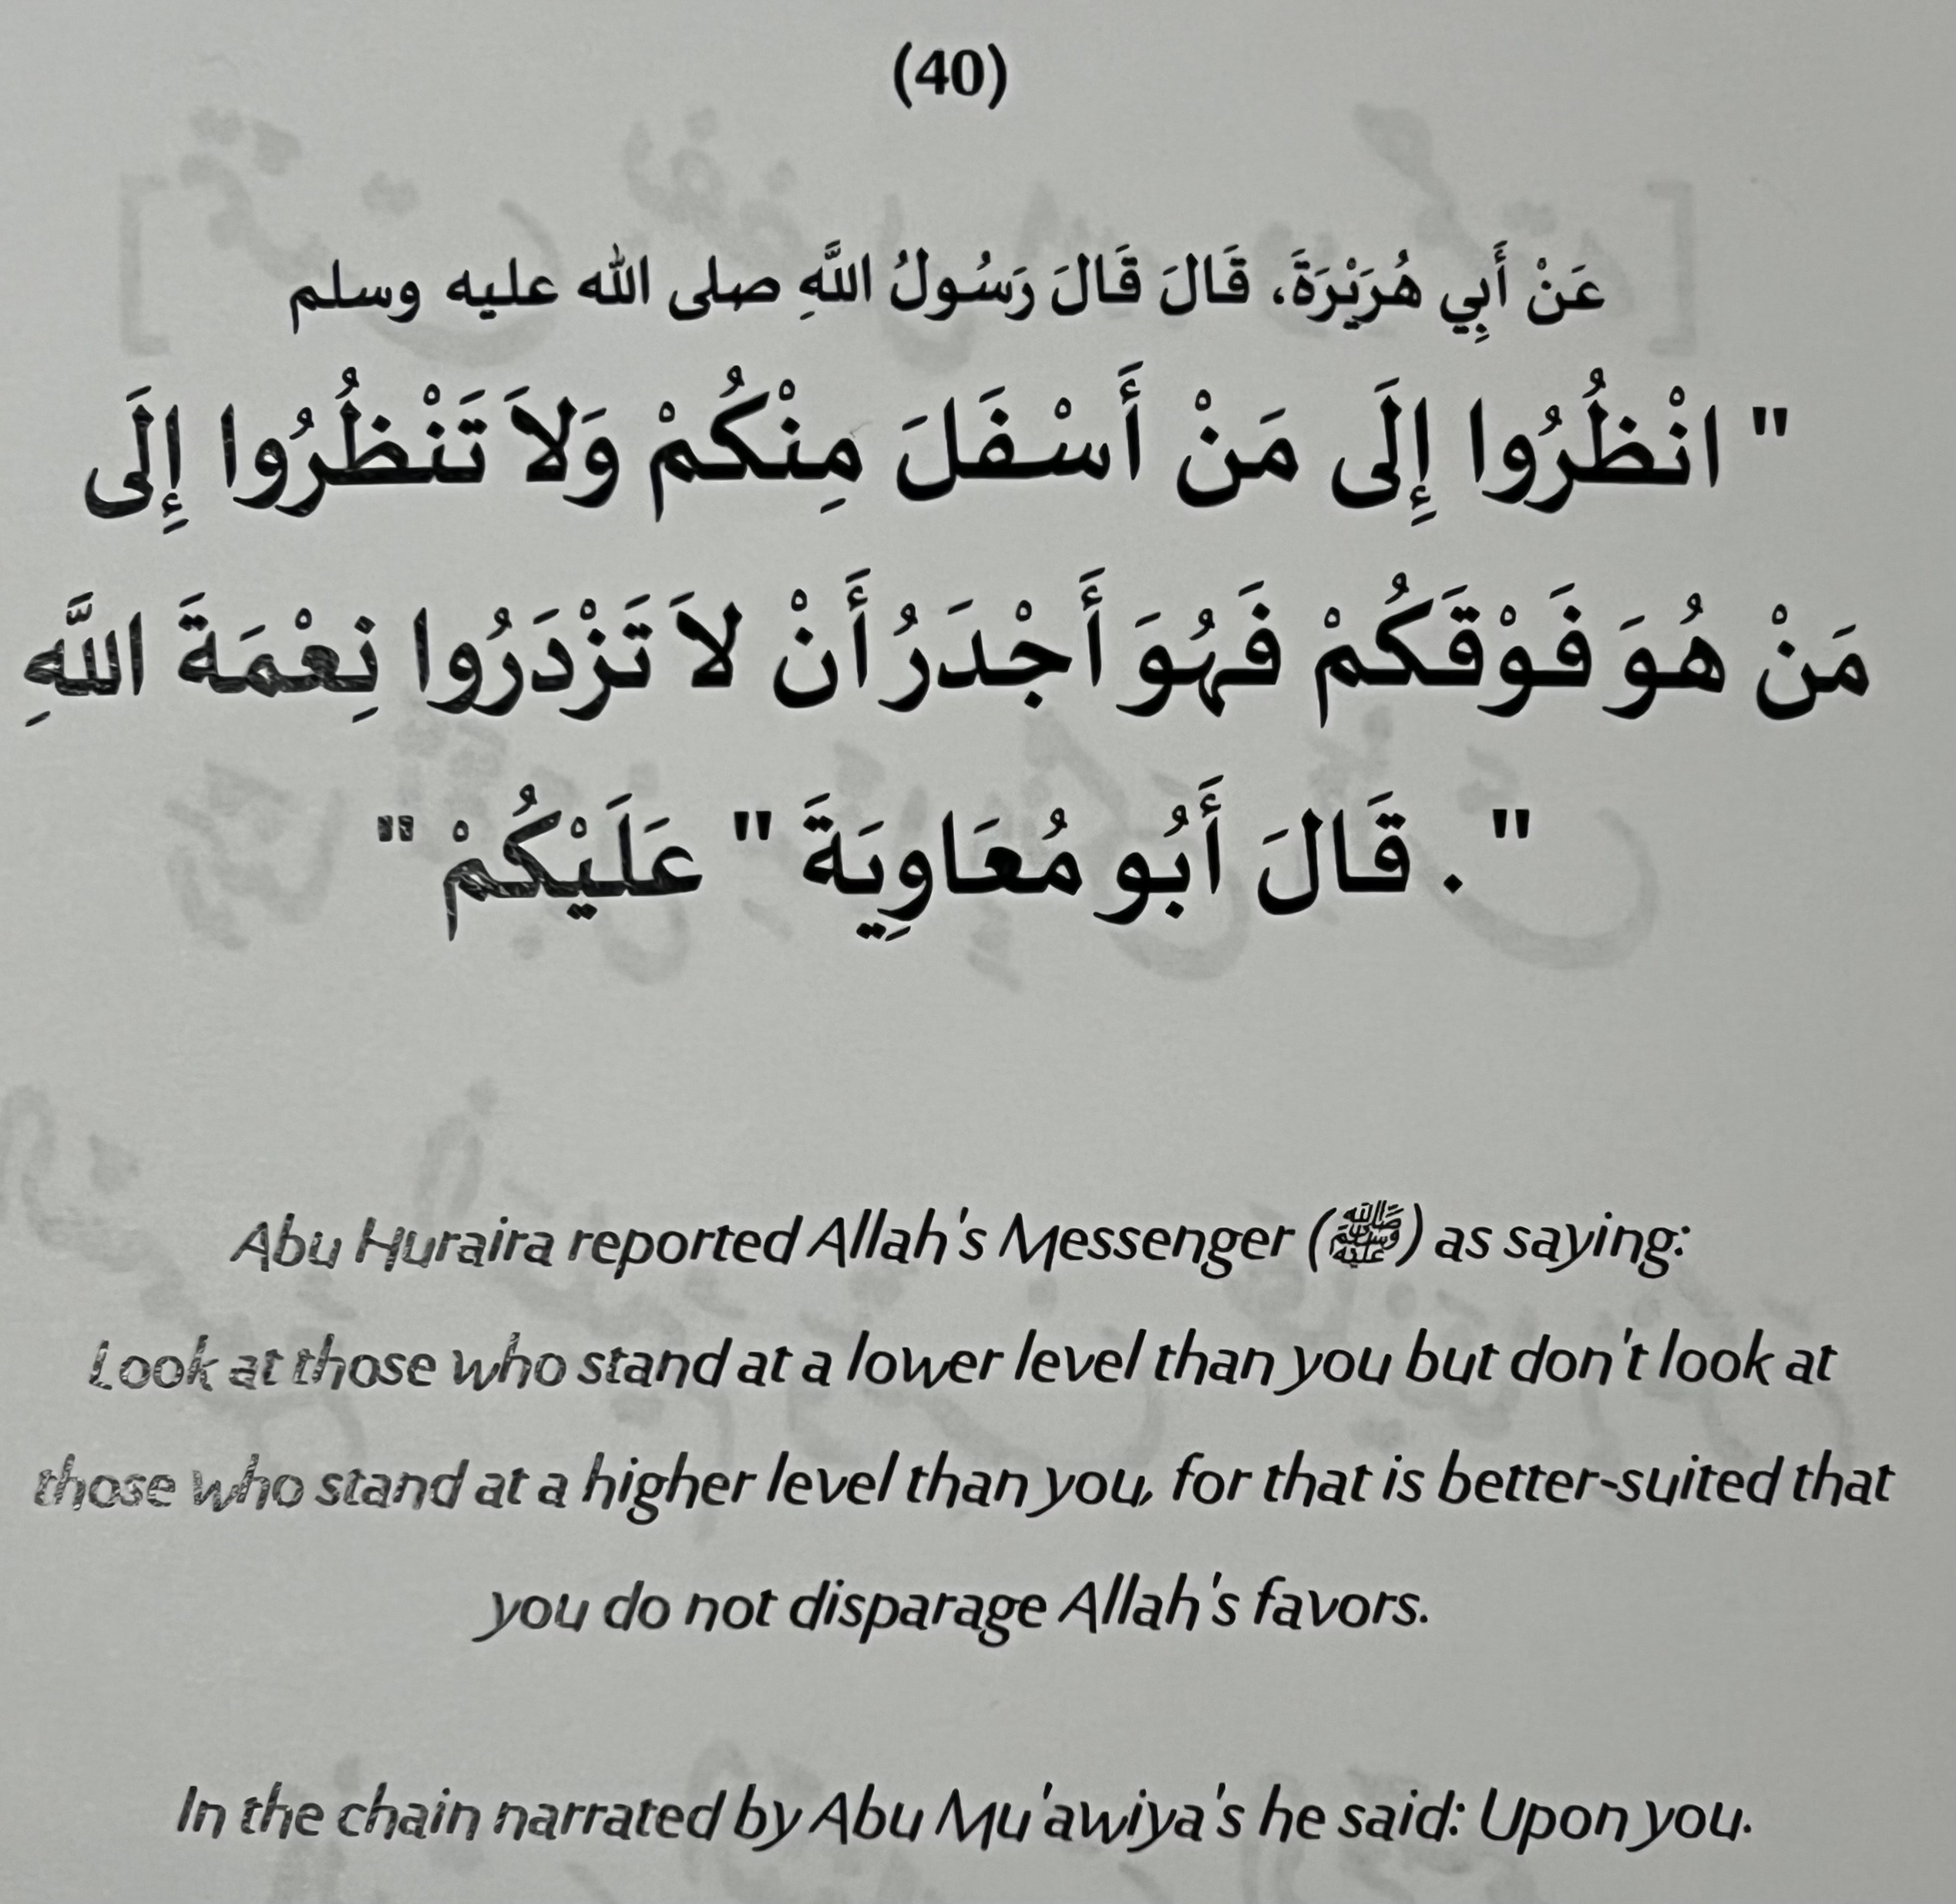 (40)
عَنْ أَبِي هُرَيْرَةَ، قَالَ قَالَ رَسُولُ اللَّهِ صلى الله عليه وسلم
" انْظُرُوا إِلَى مَنْ أَسْفَلَ مِنْكُمْ وَلاَ تَنْظُرُوا إِلَى
مَنْ هُوَ فَوْقَكُمْ فَهُوَ أَجْدَرُ أَنْ لاَ تَزْدَرُوا نِعْمَةَ اللَّهِ
" . قَالَ أَبُو مُعَاوِيَةَ " عَلَيْكُمْ "
Abu Huraira reported Allah's Messenger (ﷺ) as saying:
Look at those who stand at a lower level than you but don't look at
those who stand at a higher level than you, for that is better-suited that
you do not disparage Allah's favors.
In the chain narrated by Abu Mu'awiya's he said: Upon you.